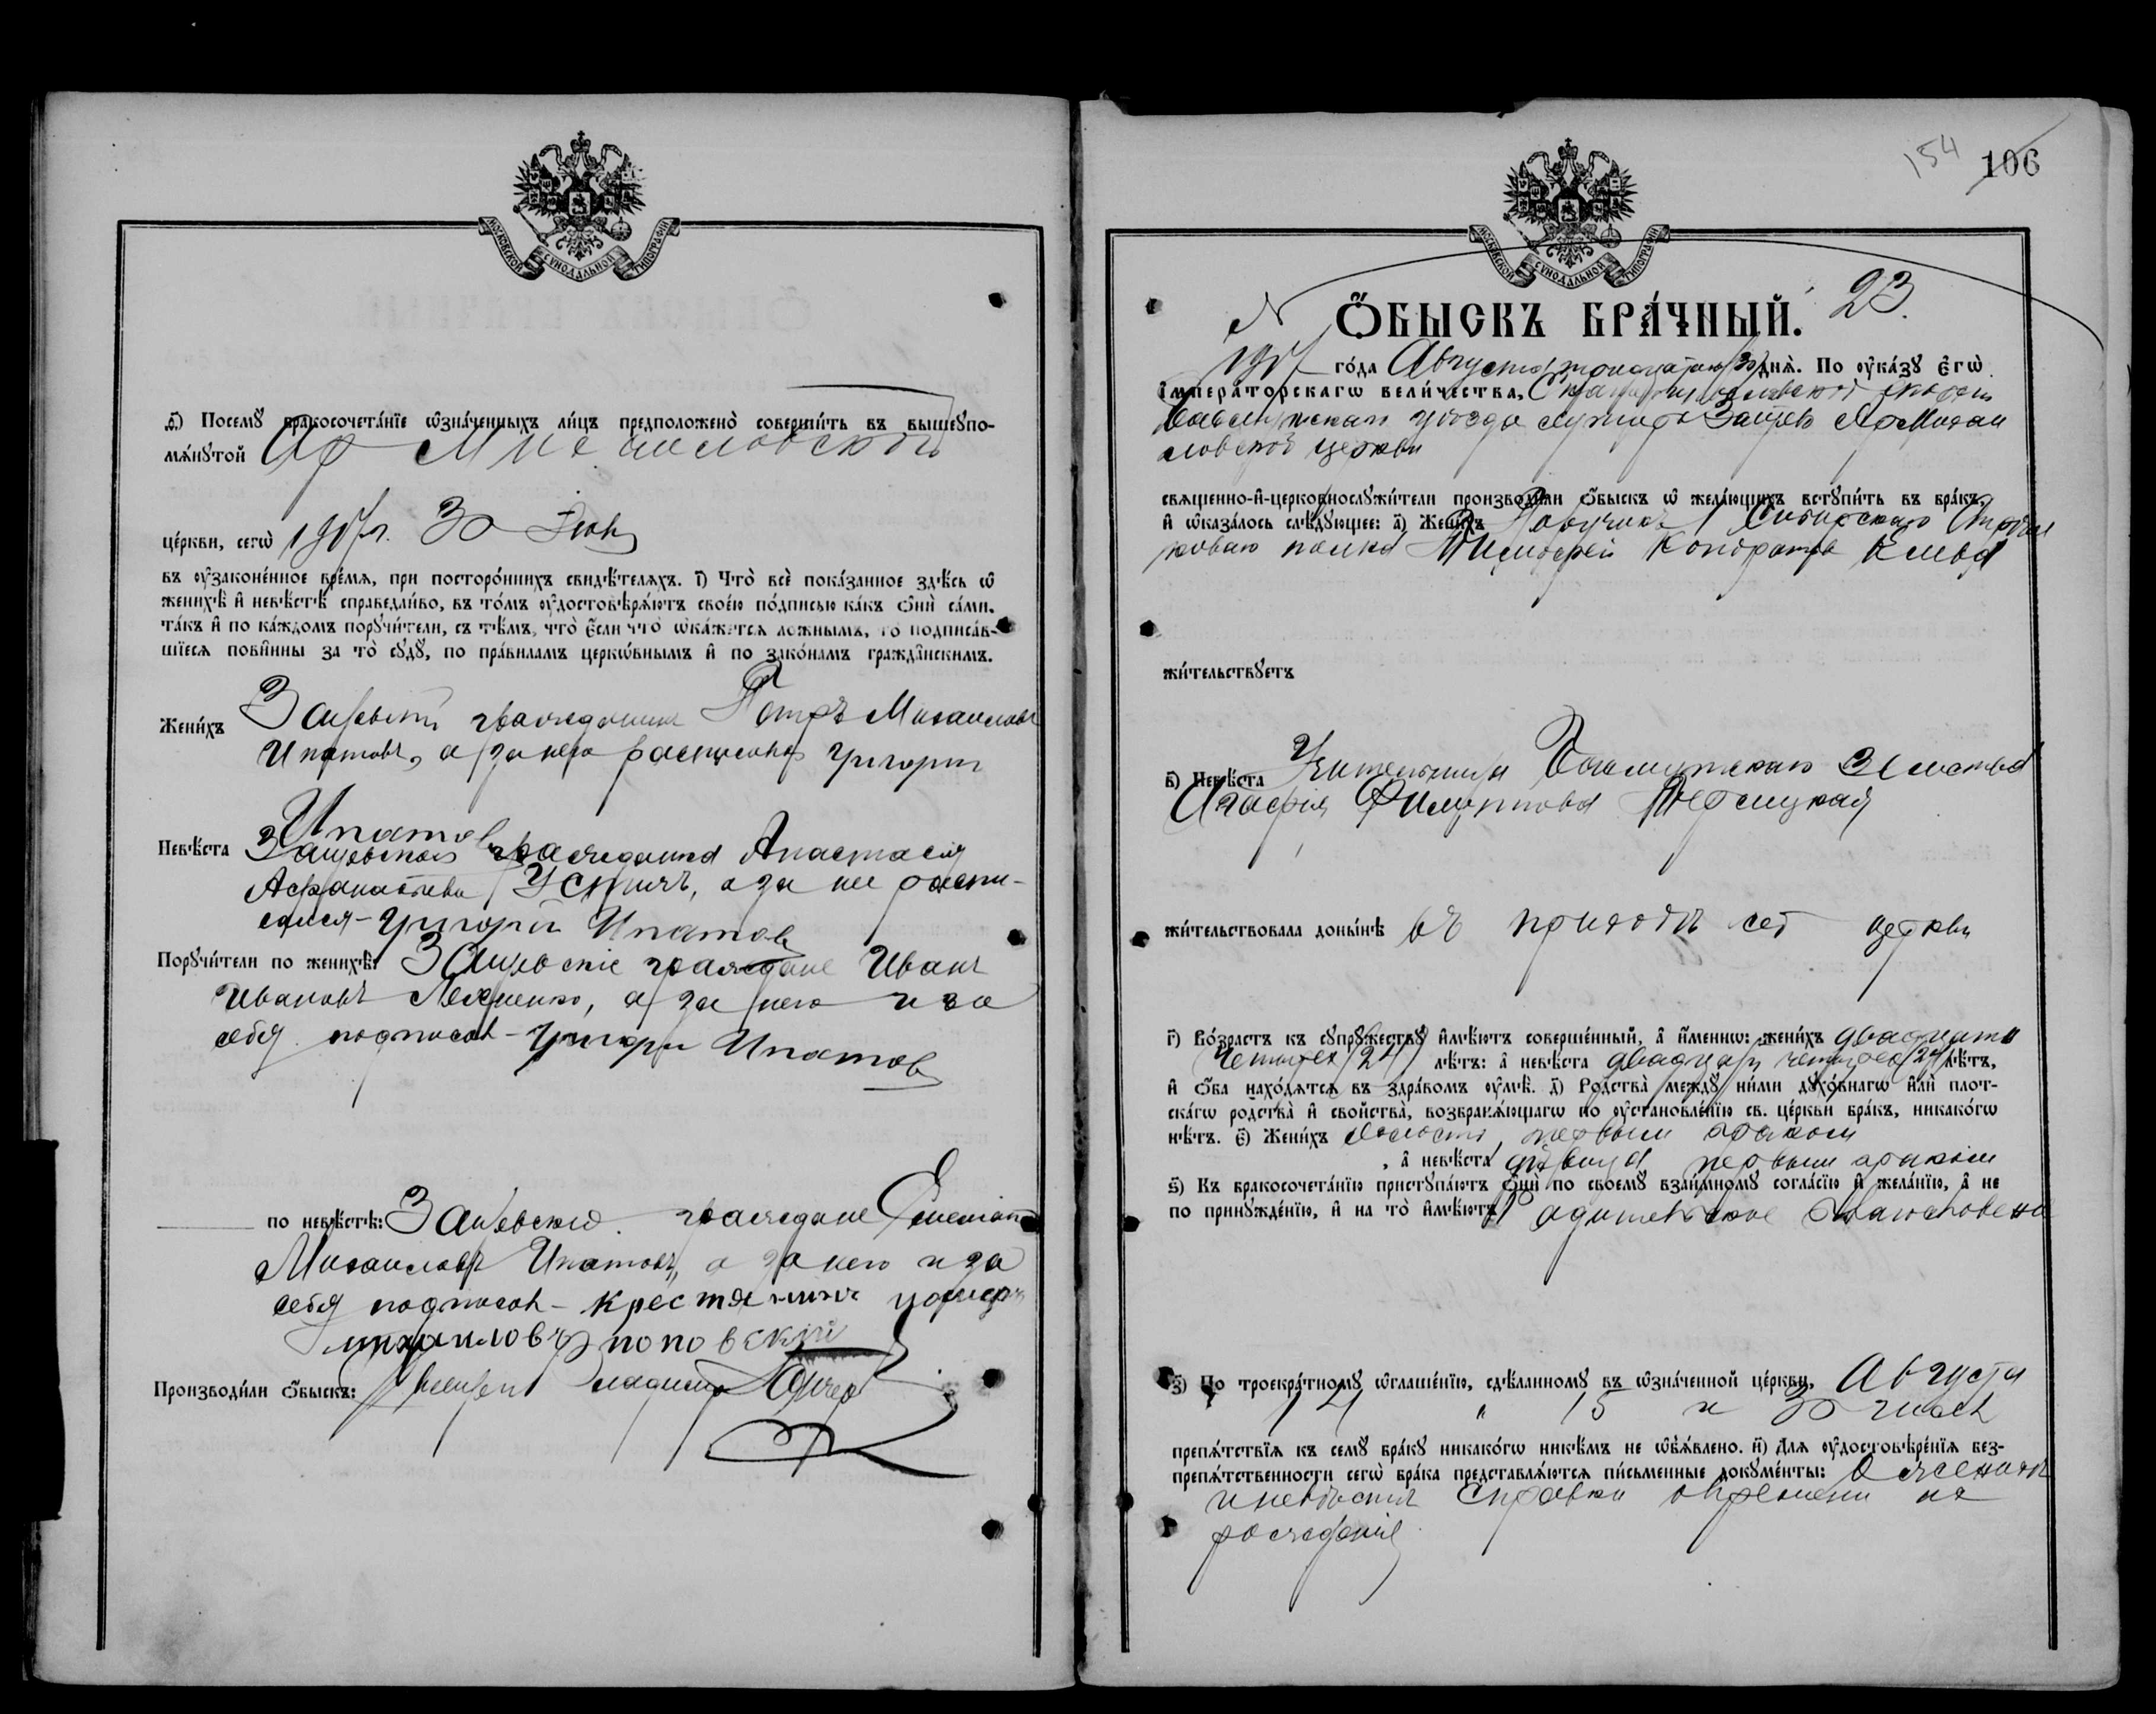 МОСКОВСКОЙ СУНОДАЛЬНОЙ ТИПОГРАФІИ
д҃) Посемꙋ̀ бракосочета́нїе ѡ҆зна́ченныхъ ли́цъ предположено̀ соверши́ть въ вышеꙋпо-
мѧ́нꙋтой Ар Михаиловской
це́ркви, сегѡ̀ 1917 г. 30 Июн
въ ᲂу҆законе́нное вре́мѧ, при посторо́ннихъ свидѣ́телѧхъ. і҃) Что̀ всѐ пока́занное здѣ́сь ѡ҆
женихѣ̀ и҆ невѣ́стѣ справедли́во, въ то́мъ ᲂу҆достовѣрѧ́ютъ свое́ю по́дписью ка́къ ѻ҆нѝ са́ми,
та́къ и҆ по ка́ждомъ порꙋчи́тели, съ тѣ́мъ, что̀ є҆́сли что̀ ѡ҆ка́жетсѧ ло́жнымъ, то̀ подписа́в-
шїесѧ пови́нны за то̀ сꙋдꙋ̀, по пра́виламъ церкѡ́внымъ и҆ по зако́намъ гражда́нскимъ.
Жени́хъ гражданин Петръ Михаиловъ
Ипатовъ, а за него расписалс Григорий
Ипатов
Невѣ́ста гражданка Анастасия
Афанасіева а за нее распи-
сался - Григорий Ипатов
Порꙋчи́тели по женихѣ̀: граждане Иванъ
Ивановъ а за него и за
себя подписал - Григорий Ипатов
по невѣ́стѣ: граждане
Михаиловъ Ипатовъ, а за него и за
себя подписал - крестянинъ
михаиловъ поповский
Производи́ли ѻ҆́быскъ:
154 106
МОСКОВСКОЙ СУНОДАЛЬНОЙ ТИПОГРАФІИ
N 23.
Ѻ҆́БЫСКЪ БРА́ЧНЫЙ.
1917 го́да Августа тридцатаго (30) днѧ̀. По ᲂу҆ка́зꙋ є҆гѡ̀
і҆мпера́торскагѡ вели́чества,
уѣзда Михаи
ловской церкви
свѧще́нно-и҆-церковнослꙋжи́тели производи́ли ѻ҆́быскъ ѡ҆ жела́ющихъ встꙋпи́ть въ бра́къ,
и҆ ѡ҆каза́лось слѣ́дꙋющее: а҃) Жени́хъ Поручикъ Сибирскаго Стрѣл
коваго полка Тимофей Кондратов
жи́тельствꙋетъ
в҃) Невѣ́ста Учительница Бахмутскаго Земства
Агафия Филиппова
жи́тельствовала донынѣ въ приходѣ сей церкви
г҃) Во́зрастъ къ сꙋпрꙋ́жествꙋ и҆мѣ́ютъ соверше́нный, а҆ и҆́меннѡ: жени́хъ двадцати
четырех (24) лѣ́тъ: а҆ невѣ́ста двадцати четырех (24) лѣ́тъ,
и҆ ѻ҆́ба нахо́дѧтсѧ въ здра́вомъ ᲂу҆мѣ̀. д҃) Родства̀ междꙋ̀ ни́ми дꙋхо́внагѡ и҆лѝ плот-
ска́гѡ родства̀ и҆ сво́йства̀, возбранѧ́ющагѡ по ᲂу҆становле́нїю св. це́ркви бра́къ, никако́гѡ
нѣ́тъ. є҃) Жени́хъ холостъ, первым браком
, а҆ невѣ́ста дѣвица первым браком
ѕ҃) Къ бракосочета́нїю пристꙋпа́ютъ ѻ҆нѝ по своемꙋ̀ взаи́мномꙋ согла́сїю и҆ жела́нїю, а҆ не
по принꙋжде́нїю, и҆ на то̀ и҆мѣ́ютъ родительское благословение
з҃) По троекра́тномꙋ ѡ҆глаше́нїю, сдѣ́ланномꙋ въ ѡ҆зна́ченной це́ркви, Августа
14 " 15 и 30 чисел
препѧ́тствїѧ къ семꙋ̀ бра́кꙋ никако́гѡ никѣ́мъ не ѡ҆б̾ѧ́влено. и҃) Длѧ ᲂу҆достовѣре́нїѧ без-
препѧ́тственности сегѡ̀ бра́ка представлѧ́ютсѧ пи́сьменные докꙋме́нты: О женихѣ
и невѣсте справки о времени их
рождения